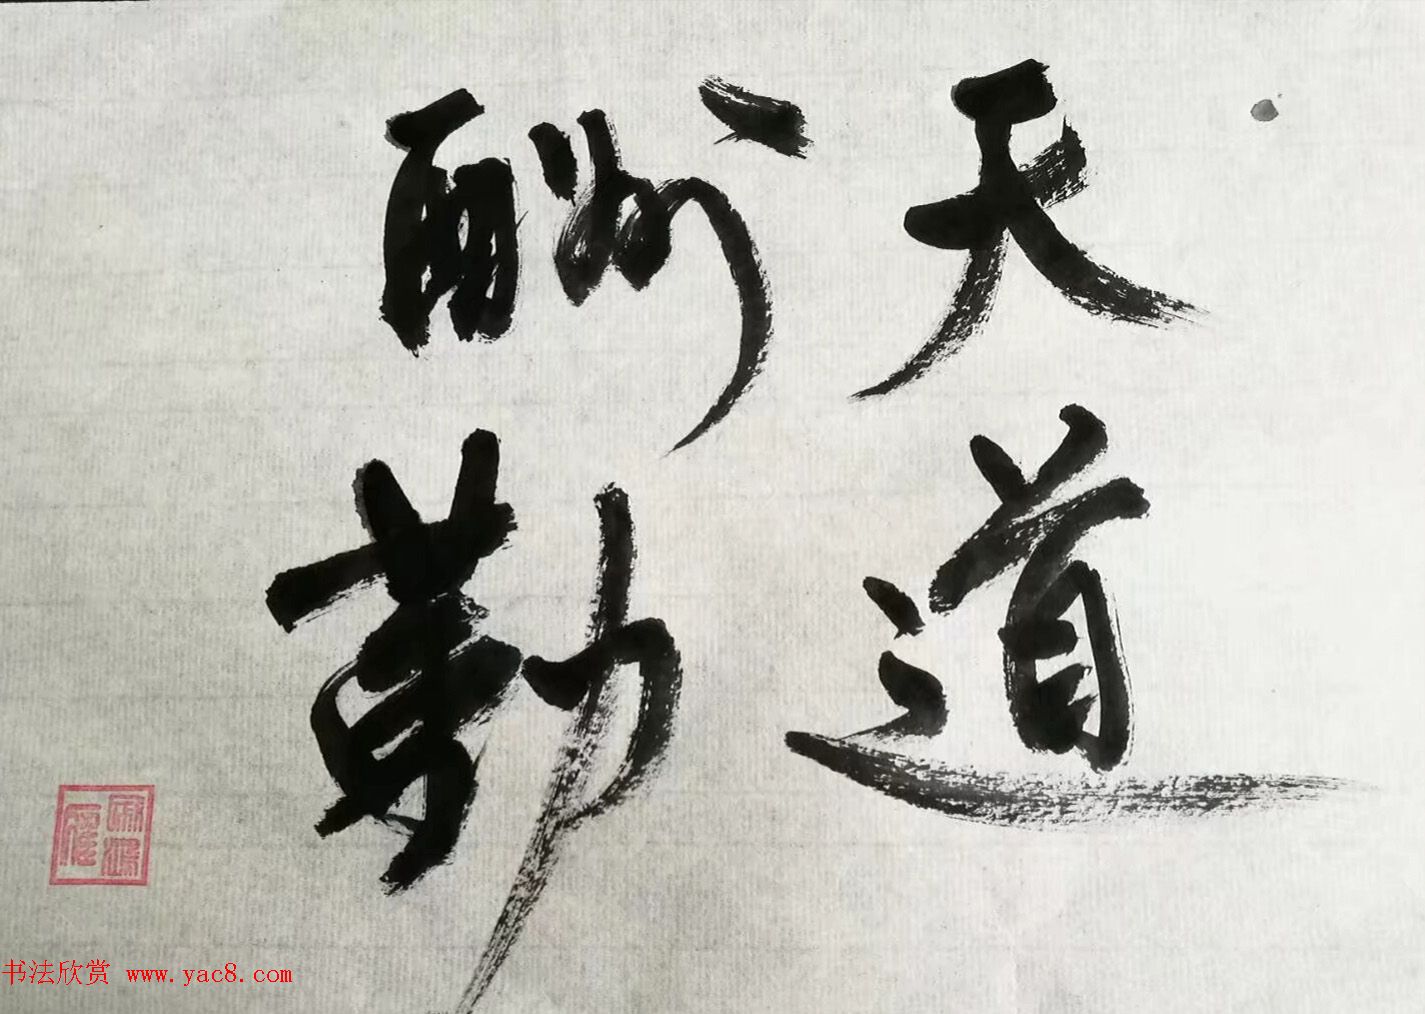 天道
酬勤
书法欣赏 www.yac8.com